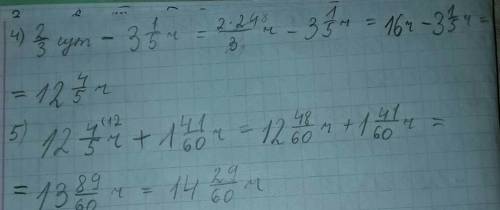 4) 2/3 сут − 3 1/5 ч = 2·24⁸/3 ч − 3 1/5 ч = 16ч − 3 1/5 ч =
= 12 4/5 ч
5) 12 4/5⁽¹² ч + 1 41/60 ч = 12 48/60 ч + 1 41/60 ч =
= 13 89/60 ч = 14 29/60 ч